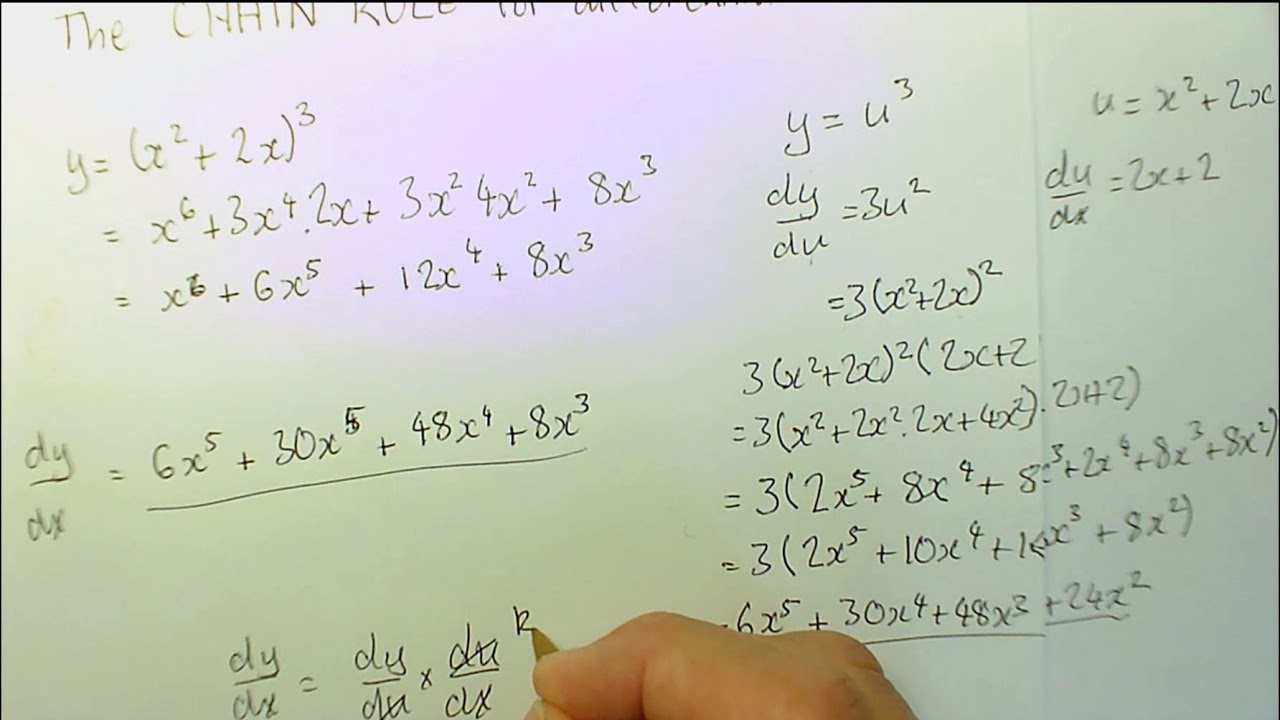 The CHAIN RULE for
y = (x² + 2x)³
= x⁶ + 3x⁴.2x + 3x² 4x² + 8x³
= x⁶ + 6x⁵ + 12x⁴ + 8x³
dy/dx = 6x⁵ + 30x⁵ + 48x⁴ + 8x³
dy/dx = dy/du × du/dx
y = u³
dy/du = 3u²
= 3(x²+2x)²
3(x²+2x)²(2x+2
= 3(x²+2x².2x+4x²).2x+2)
= 3(2x⁵ + 8x⁴ + 8x³+2x⁴+8x³+8x²)
= 3(2x⁵ + 10x⁴ + 16x³ + 8x²)
= 6x⁵ + 30x⁴ + 48x³ + 24x²
u = x² + 2x
du/dx = 2x+2